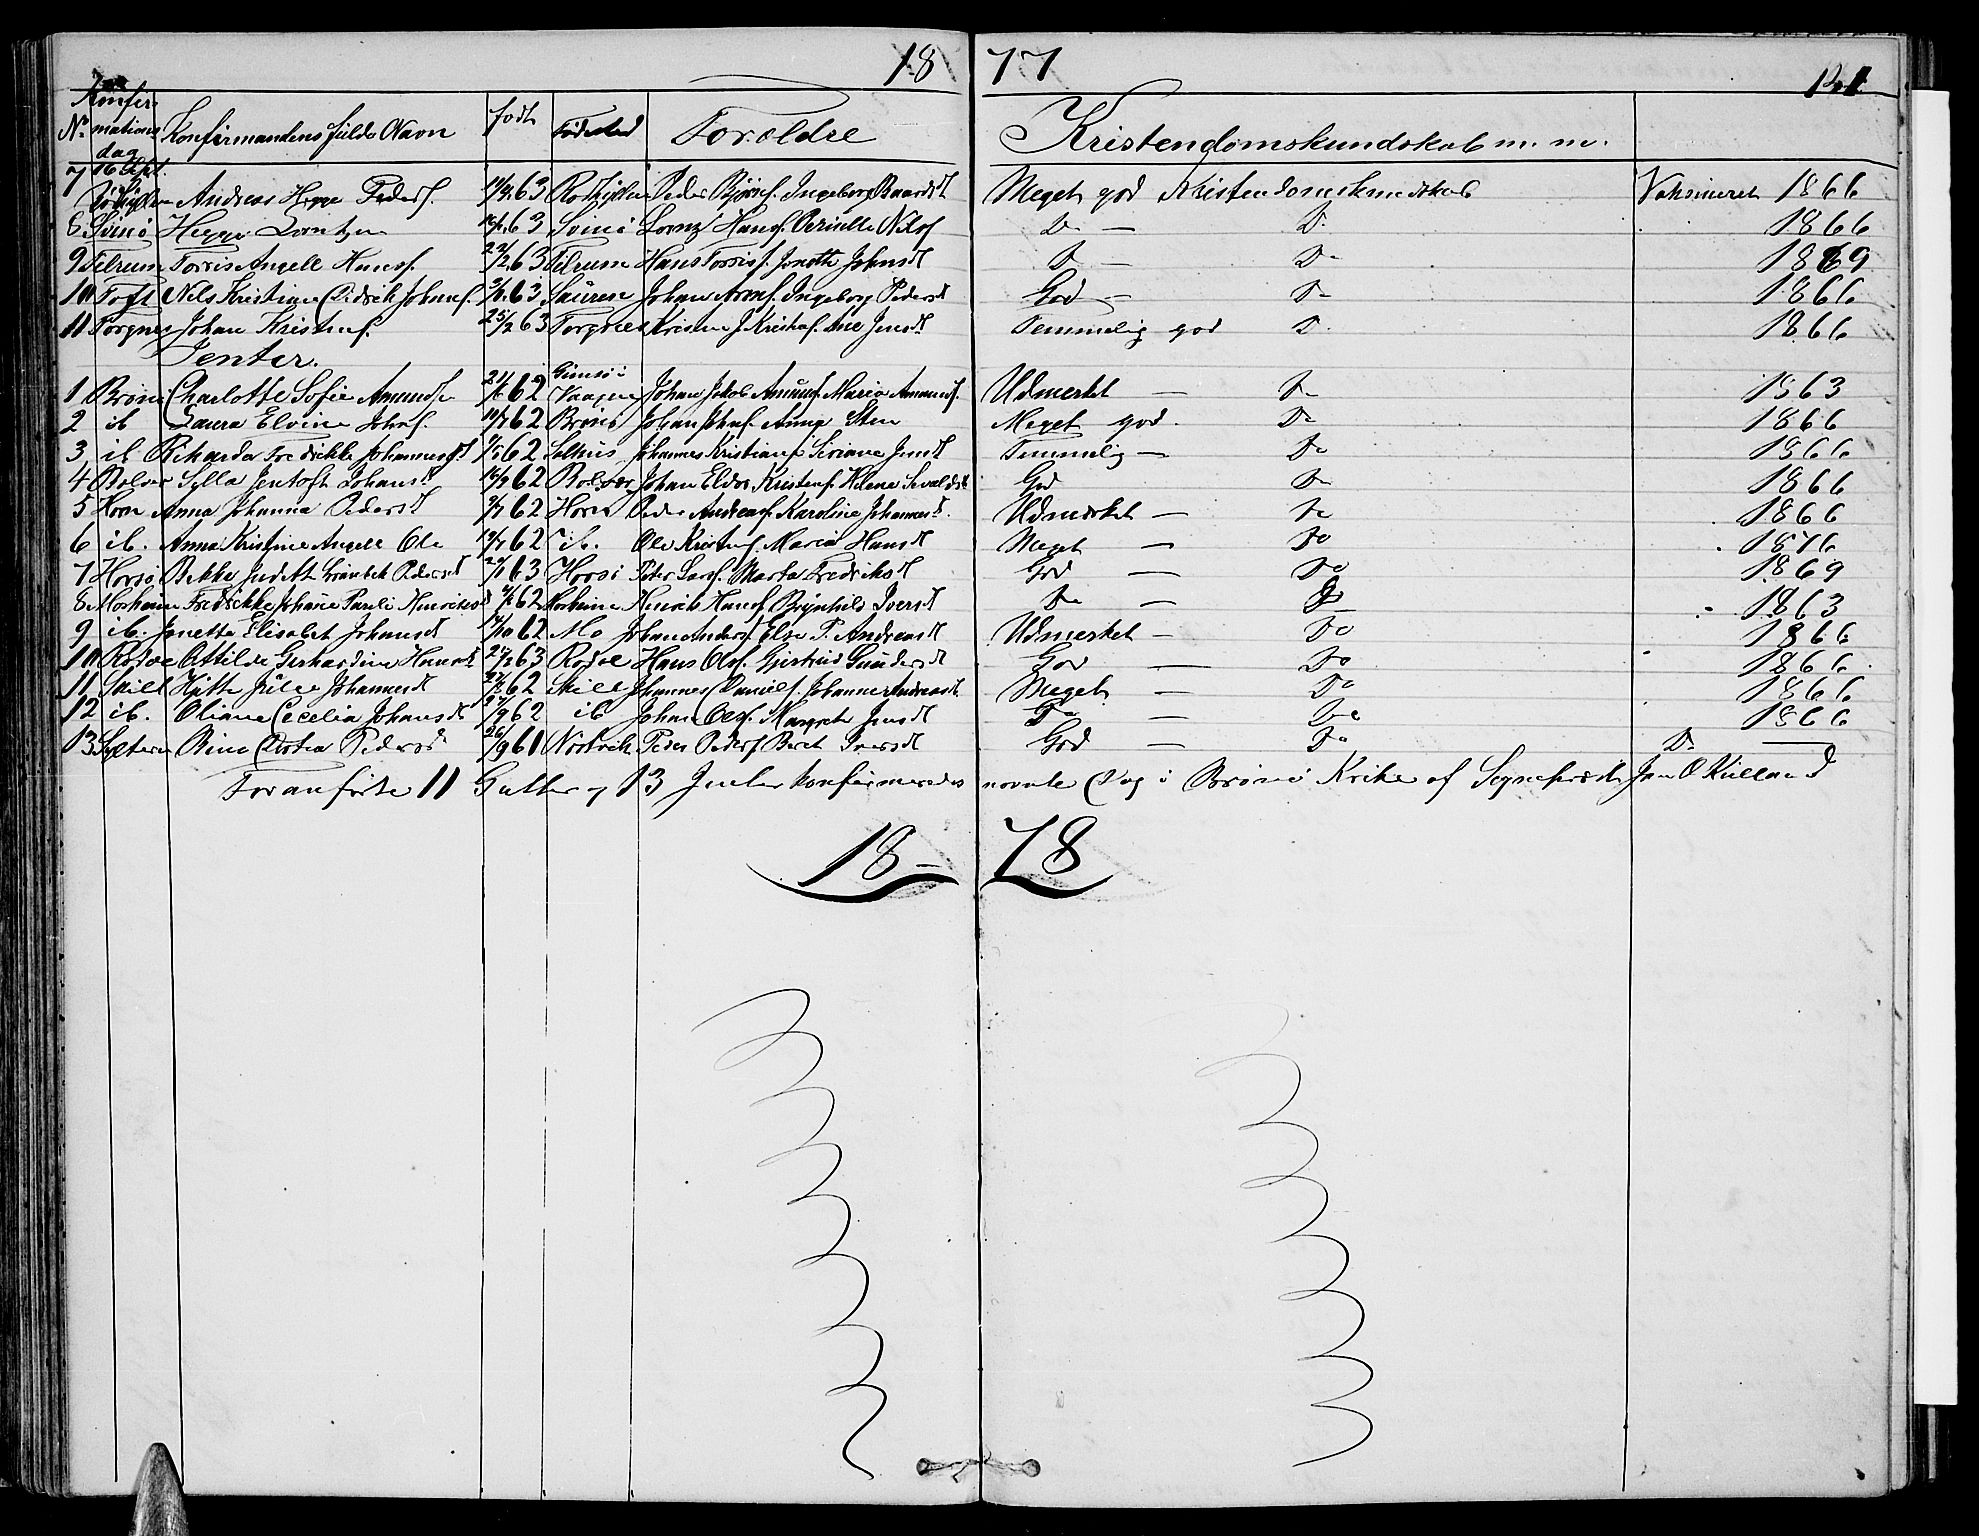 18 77
121
No Konfirmations dag Konfirmandens fulde Navn født Fødested Forældre Kristendomskundskab m. m.
7 16 Sept. Andreas Hegge Peders. 63 Peder Bjørns. Ingeborg Baardsdt Meget god Kristendomskundskab Vaksineret 1866
8 Svinø Hegge Lorntzen 63 Svinø Lorntz Hans. Nils Do — Do 1866
9 Tilrum Torris Angell Hans. 22/2 63 Tilrum Hans Torris. Jonette Johnsdt Do — Do 1869
10 Toft Nils Kristian Didrik Johns. 63 Sauren Johan Ingeborg Pedersdt God — Do 1866
11 Torgnes Johan Kristians. 25/2 63 Torgnes Kristen J. Ane Jensdt Temmelig god Do 1866
Jenter.
1 Brønø Charlotte Sofie Amundsen 62 Gimsø i Vaagan Johan Jakob Amunds. Maria Amunds. Udmerket — Do 1863
2 ib Laura Elvine Johns. 62 Brønø Johan Johns. Anna Sten Meget god. Do 1866
3 ib Rikarda Fredrikke Johannesdt 62 Salhus Johannes Kristians. Siriane Jensdt Temmelig — Do 1866
4 Bolvær Sylla Jentoft Johansdt 62 Bolvær Johan Eldor Kristens. Helena Sivaldsdt God Do 1866
5 Horn Anna Johanna Pedersdt 62 Horn Peder Andreas. Karoline Johannesdt. Udmerket — Do 1866
6 ib. Anna Kristine Angell Ols 62 ib. Ole Kristens. Maria Hansdt Meget — Do 1876
7 Horsø Bekka Judith Pedersdt 63 Horsø Peter Lars. Marta Fredriksdt God — Do 1869
8 Mosheim Fredrikke Johanne Pauli Henriksdt 62 Mosheim Henrik Hans. Brynhild Iversdt Do — Do 1863
9 ib. Jonetta Elisabet Johansdt 62 Mo Johan Anders. Else P. Andreasdt Udmerket — Do 1866
10 Rødøe Ottilde Gerhardine Hansdt 63 Rødøe Hans Ols. Gjertrud Gundersdt God — Do 1866
11 Skille Hytta Julie Johannesdt 62 Skille Johannes Daniels. Johanne Andreasdt Meget — Do 1866
12 ib. Oliane Cecelia Johansdt 27/9 62 ib Johan Ols. Margrete Jensdt Do — Do 1866
13 Sæteren Rina Dortea Pedersdt 26/9 61 Nordvik Peder Peders. Beret Iversdt God — Do Do —
Foranførte 11 Gutter og 13 Jenter konfirmeredes nævnte Dag i Brønø Kirke af Sogneprest Jan O Kielland
18 – 78